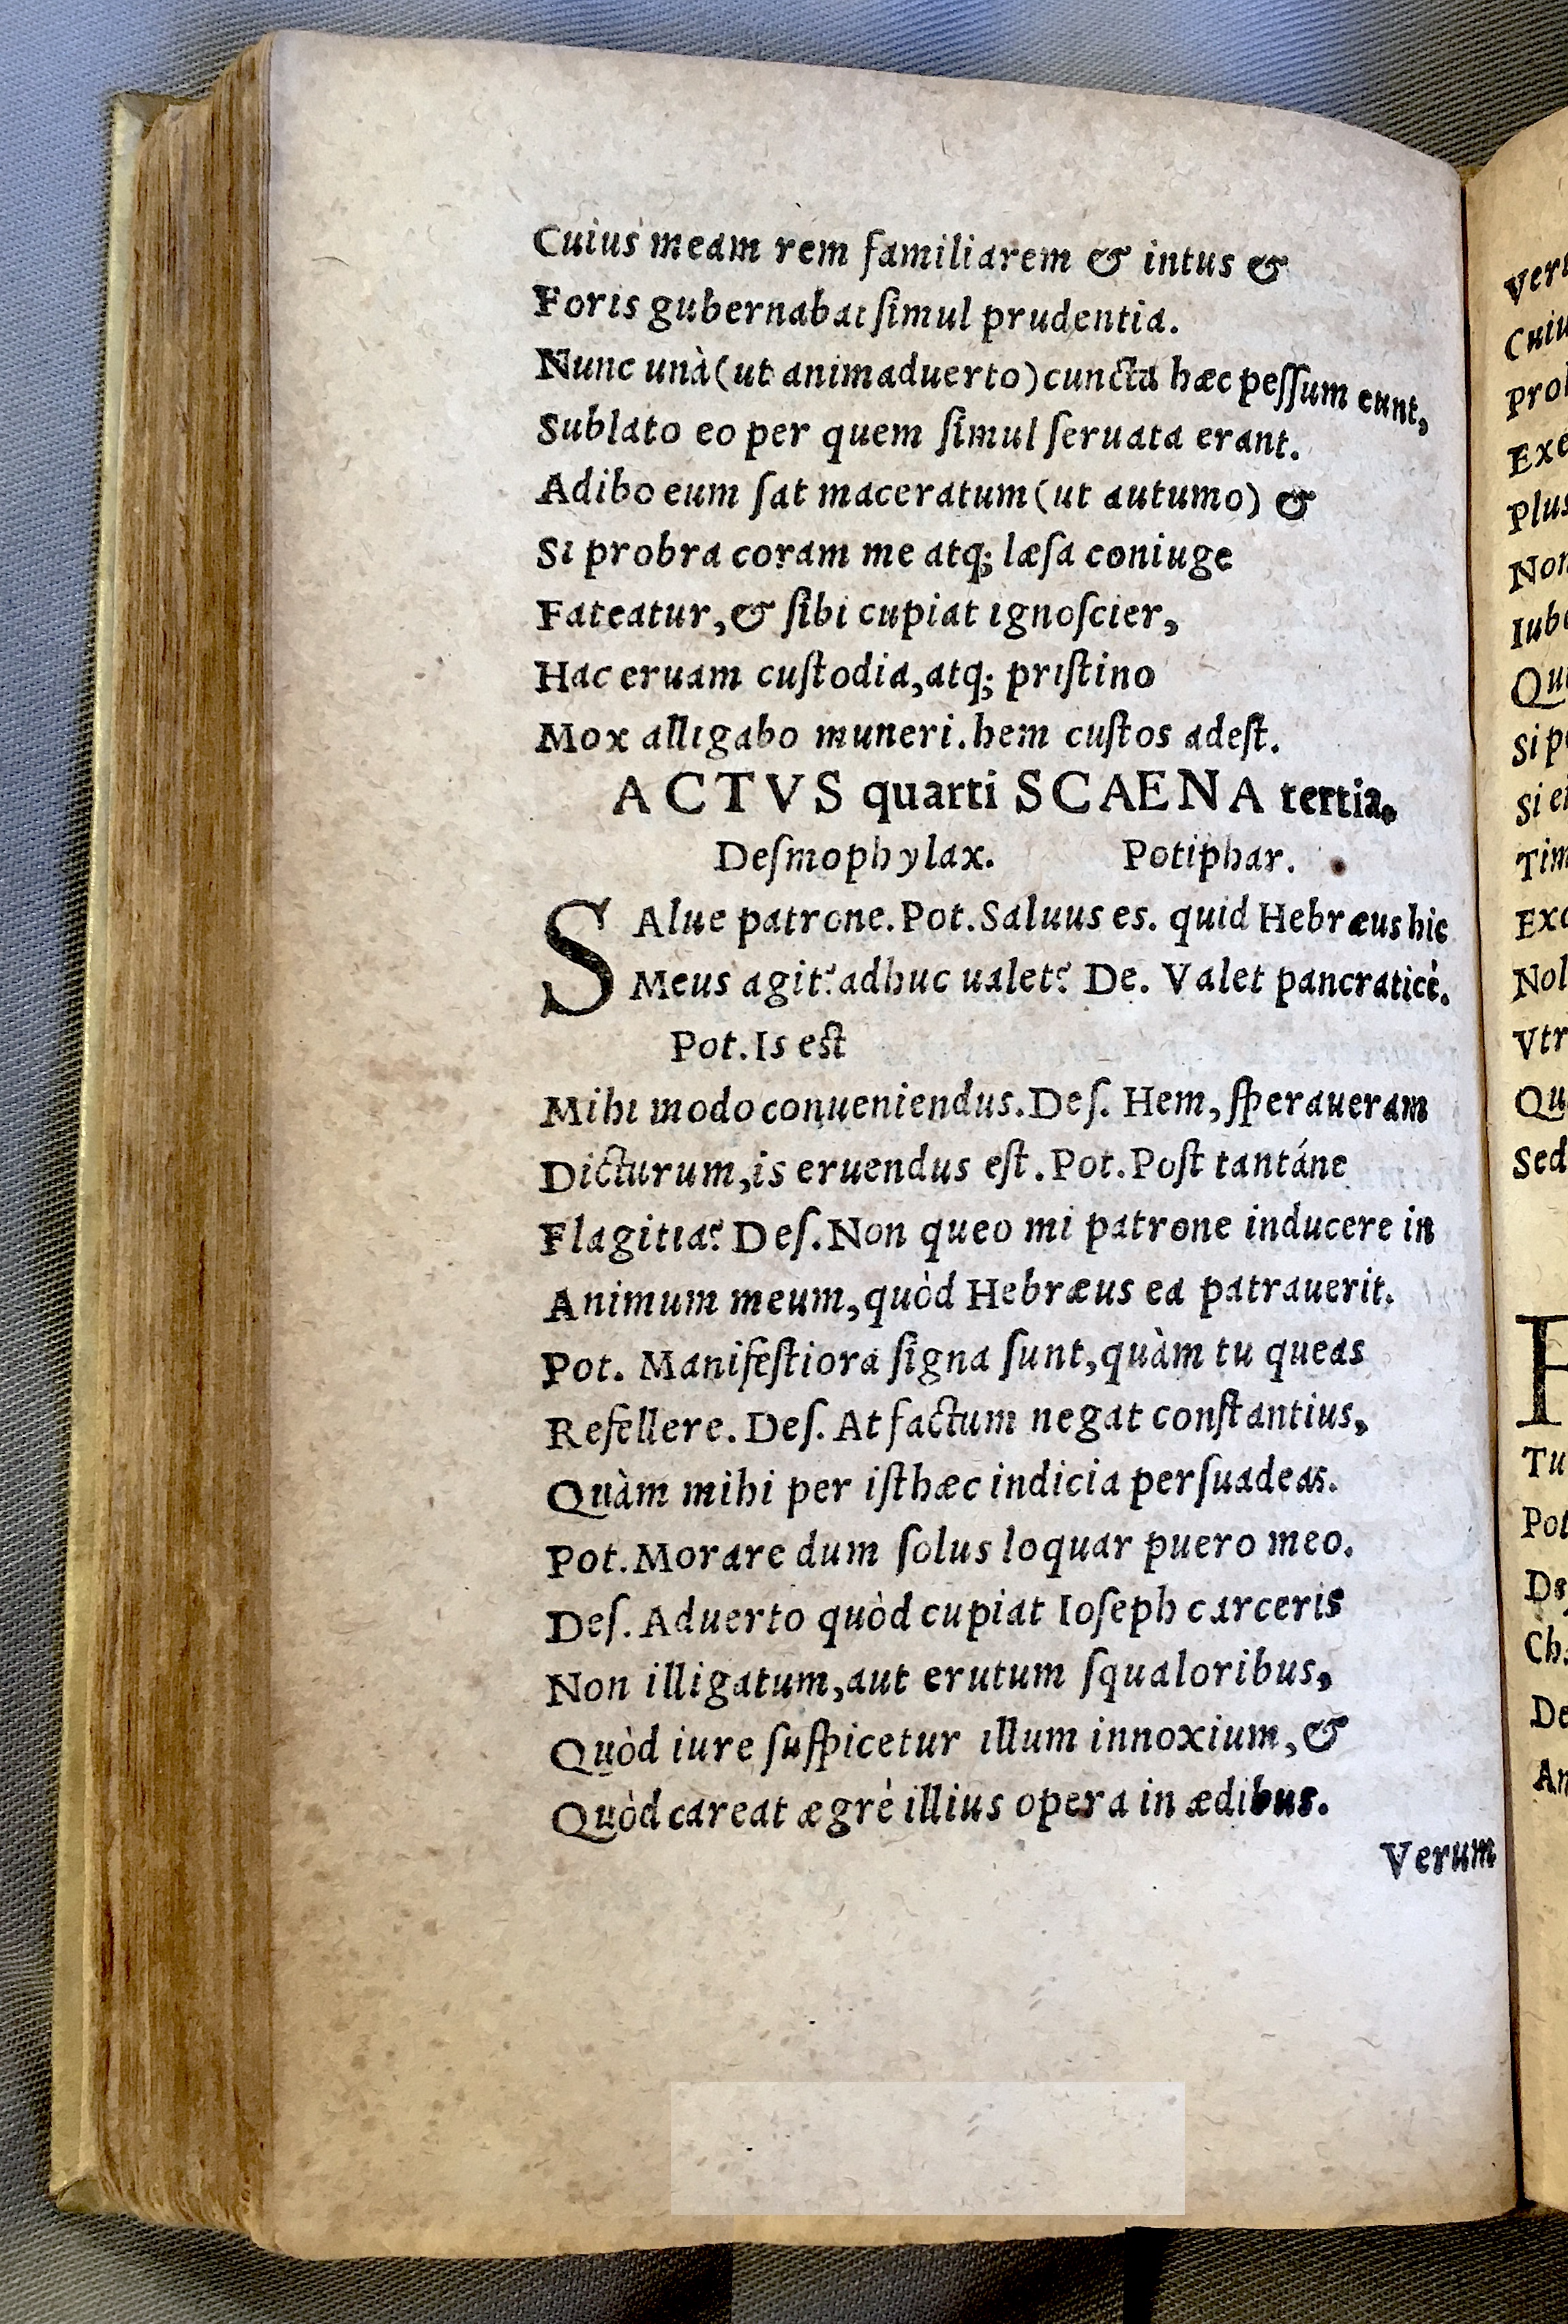 Cuius meam rem familiarem & intus &
Foris gubernabat ſimul prudentia.
Nunc unà (ut animaduerto) cuncta hæc peſſum eunt,
Sublato eo per quem ſimul ſeruata erant.
Adibo eum ſat maceratum (ut autumo) &
Si probra coram me atq; læſa coniuge
Fateatur, & ſibi cupiat ignoſcier,
Hac eruam cuſtodia, atq; priſtino
Mox alligabo muneri. hem cuſtos adeſt.
ACTVS quarti SCAENA tertia.
Deſmophylax. Potiphar.
SAlue patrone. Pot. Saluus es. quid Hebræus hic
Meus agit? adhuc ualet? De. Valet pancraticè.
Pot. Is est
Mihi modo conueniendus. Deſ. Hem, ſperaueram
Dicturum, is eruendus eſt. Pot. Poſt tantáne
Flagitia? Deſ. Non queo mi patrone inducere in
Animum meum, quòd Hebræus ea patrauerit.
Pot. Manifeſtiora ſigna ſunt, quàm tu queas
Refellere. Deſ. At factum negat conſtantius,
Quàm mihi per iſthæc indicia perſuadeas.
Pot. Morare dum ſolus loquar puero meo.
Deſ. Aduerto quòd cupiat Ioſeph carceris
Non illigatum, aut erutum ſqualoribus,
Quòd iure ſuſpicetur illum innoxium, &
Quòd careat ægrè illius opera in ædibus.
Verum
Cuiu
Exe
Plus
Non
Iube
Si p
Si e
Tim
Exc
Nol
Vtr
Qu
Sed
Tu
Pot
De
An